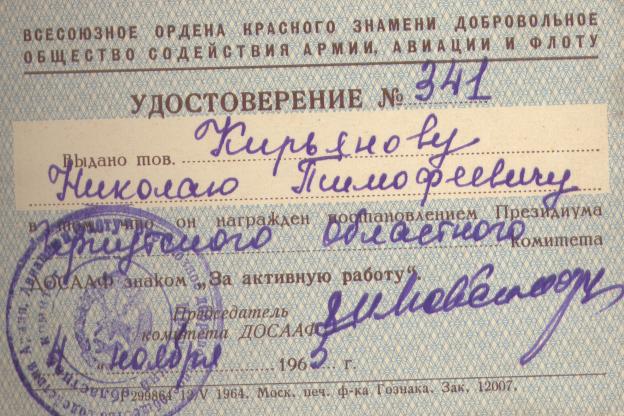 ВСЕСОЮЗНОЕ ОРДЕНА КРАСНОГО ЗНАМЕНИ ДОБРОВОЛЬНОЕ
ОБЩЕСТВО СОДЕЙСТВИЯ АРМИИ, АВИАЦИИ И ФЛОТУ
УДОСТОВЕРЕНИЕ № 341
Выдано тов. Кирьянову
Николаю Тимофеевичу
в том, что он награжден постановлением Президиума
Иркутского областного комитета
ДОСААФ знаком „За активную работу".
Председатель
комитета ДОСААФ
4 ноября 1965 г.
299864 13/V 1964. Моск. печ. ф-ка Гознака. Зак. 12007.